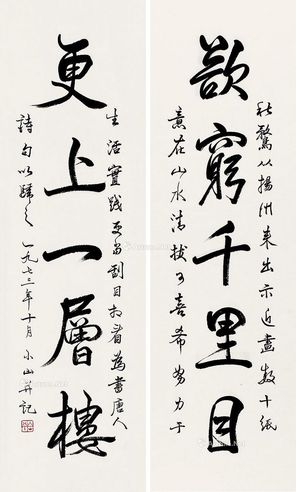 欲窮千里目
秋从揚州来出示近畫数十紙
意在山水清拔可喜希努力于
更上一層樓
生活實践更当刮目相看為書唐人
詩句以歸之 一九七三年十月 小山并記